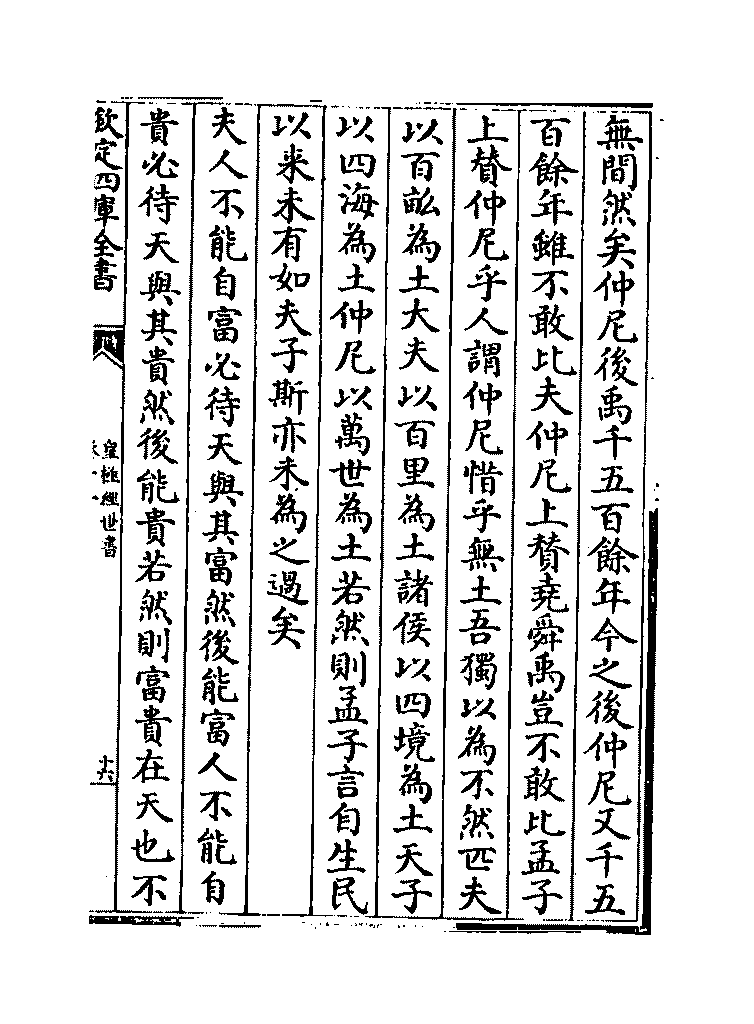 無間然矣仲尼後禹千五百餘年今之後仲尼又千五
百餘年雖不敢比夫仲尼上賛堯舜禹豈不敢比孟子
上賛仲尼乎人謂仲尼惜乎無土吾獨以為不然匹夫
以百畝為土大夫以百里為土諸侯以四境為土天子
以四海為土仲尼以萬世為土若然則孟子言自生民
以来未有如夫子斯亦未為之過矣
夫人不能自富必待天與其富然後能富人不能自
貴必待天與其貴然後能貴若然則富貴在天也不
欽定四庫全書
皇極經世書
十六